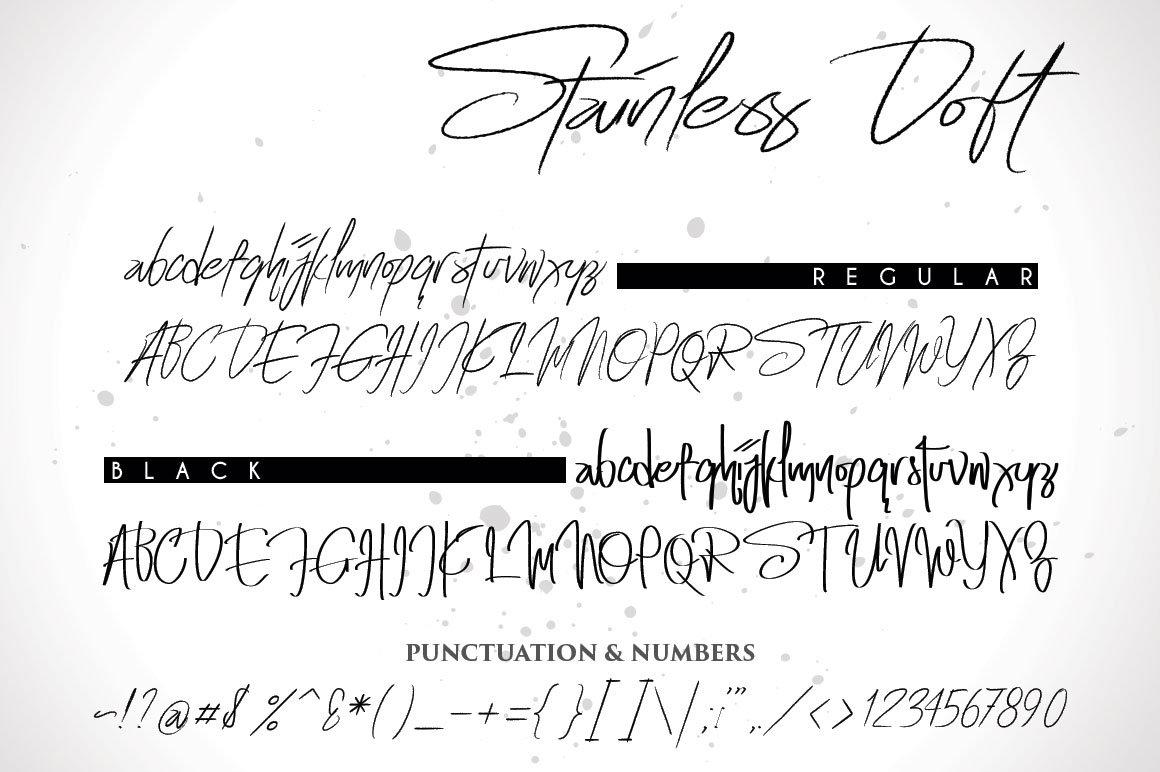 Stainless Doft
abcdefghijklmnopqrstuvwxyz
REGULAR
ABCDEFGHIJKLMNOPQRSTUVWYXZ
BLACK
abcdefghijklmnopqrstuvwxyz
ABCDEFGHIJKLMNOPQRSTUVWYXZ
PUNCTUATION & NUMBERS
~!?@#$%^&*()_-+={}[]\|;:'",./<>1234567890